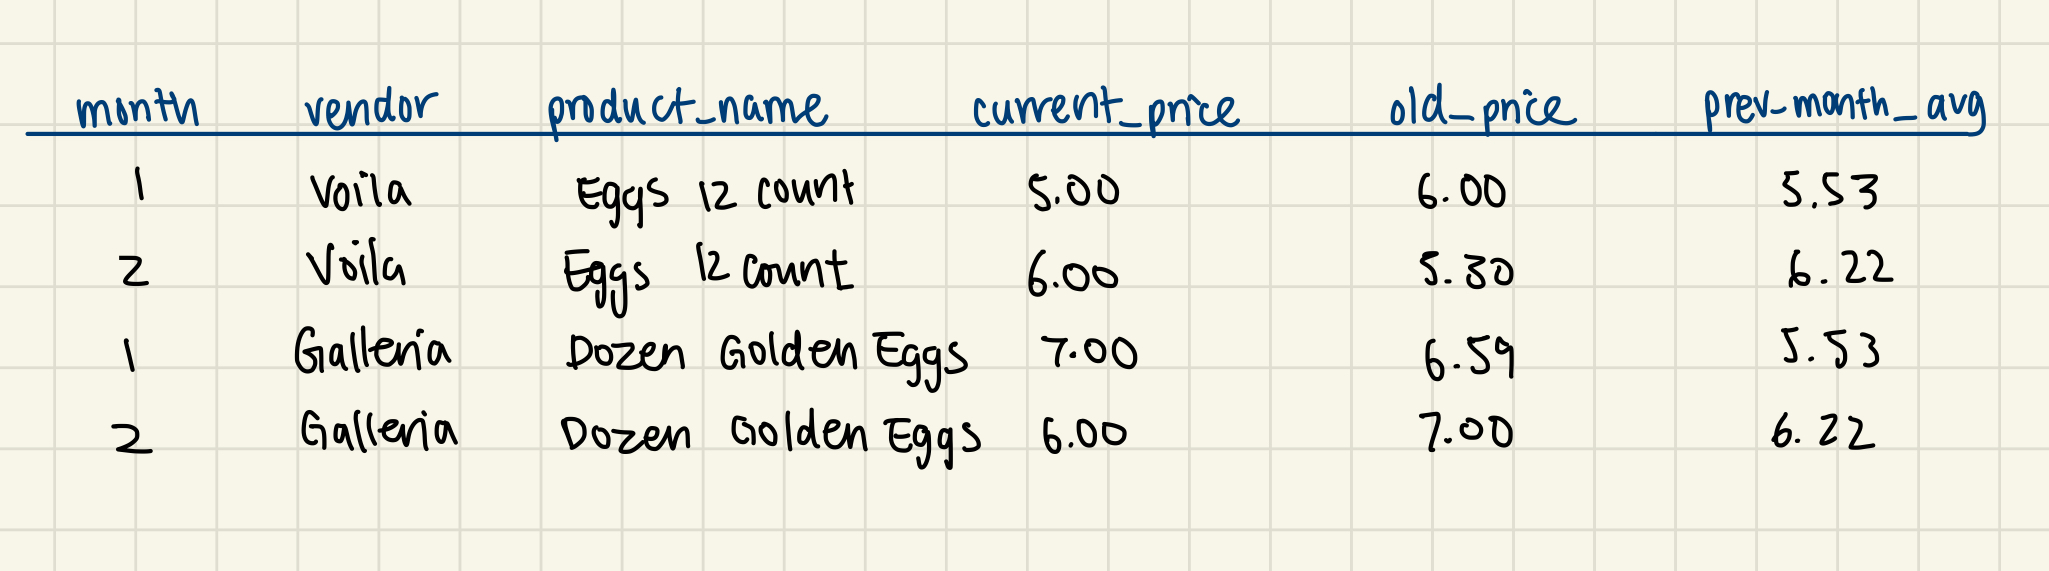 month vendor product_name current_price old_price prev_month_avg
1 Voila Eggs 12 count 5.00 6.00 5.53
2 Voila Eggs 12 count 6.00 5.30 6.22
1 Galleria Dozen Golden Eggs 7.00 6.59 5.53
2 Galleria Dozen Golden Eggs 6.00 7.00 6.22